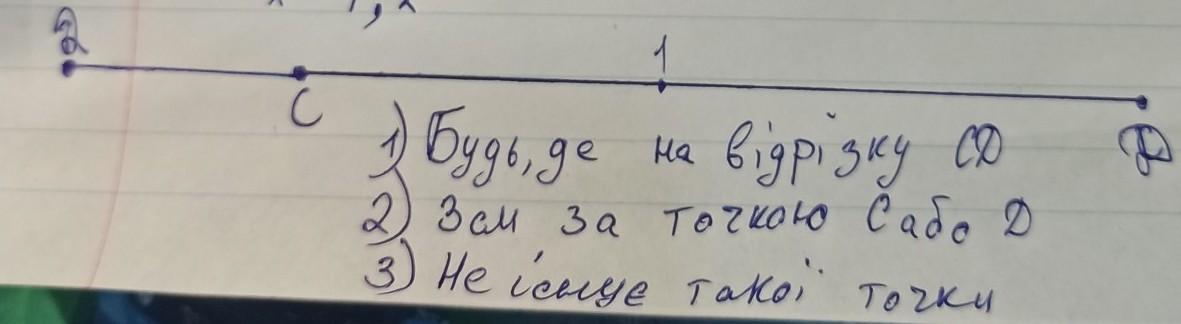 2
1
C
D
1) Будь, де на відрізку CD
2) 3 см за точкою C або D
3) Не існує такої точки